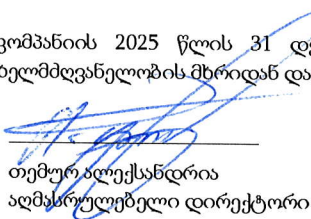 კომპანიის 2025 წლის 31 დე
ხელმძღვანელობის მხრიდან და
თემურ ალექსანდრია
აღმასრულებელი დირექტორი